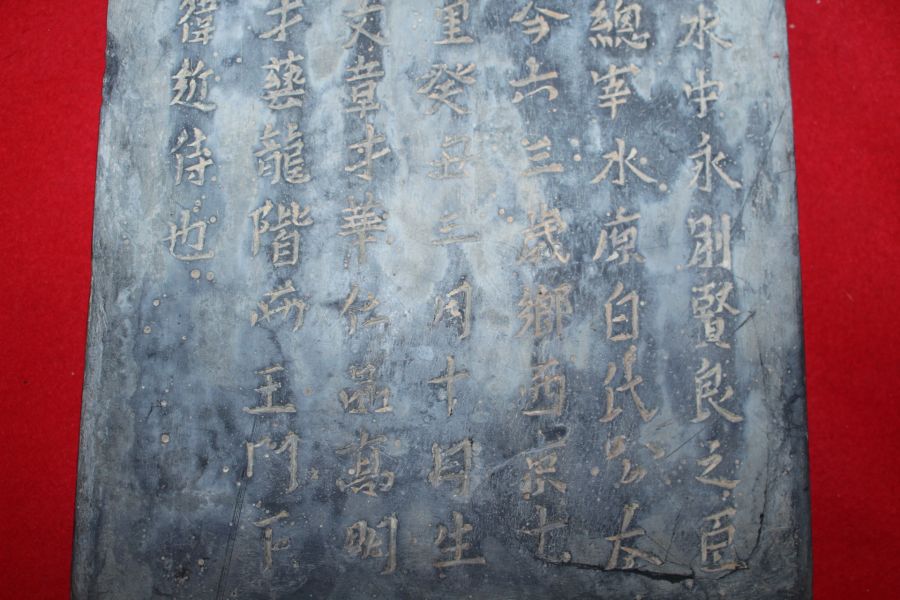 水中永別賢良之臣
總宰水原白氏公大
今六三歲鄉西京七
里癸丑三月十日生
文章才華仁品高明
才藝龍階兩王門下
偉趁侍也